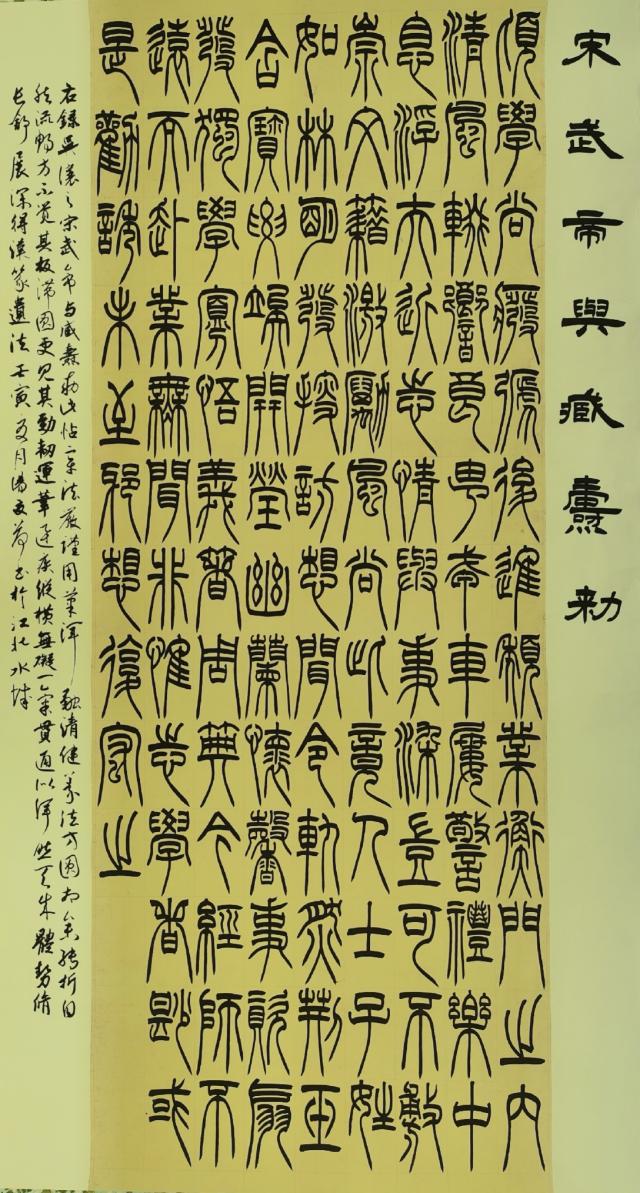 宋武帝與臧燾敕
頃學尚廢弛後進頹業衡門之內
清風輟響良由戎車屢警禮樂中
息浮夫近志情與事染豈可不敷
崇文籍激勵風尚此竟人士子姪
如林明發搜訪想聞令軌然荊玉
含寶要竢開瑩幽蘭懷馨事資扇
發獨學寡悟義著周典今經師不
遠而赴業無聞非惟志學者尟或
是勸誘未至邪想復宏之
右錄吳讓之宋武帝與臧燾敕此帖筆法嚴謹用筆渾融清健篆法方圓相參轉折自
然流暢方不覺其板滯圓更見其勁韌運筆疾縱橫無礙一氣貫通以渾然天成體勢修
長舒展深得漢篆遺法壬寅夏月書於江北水城